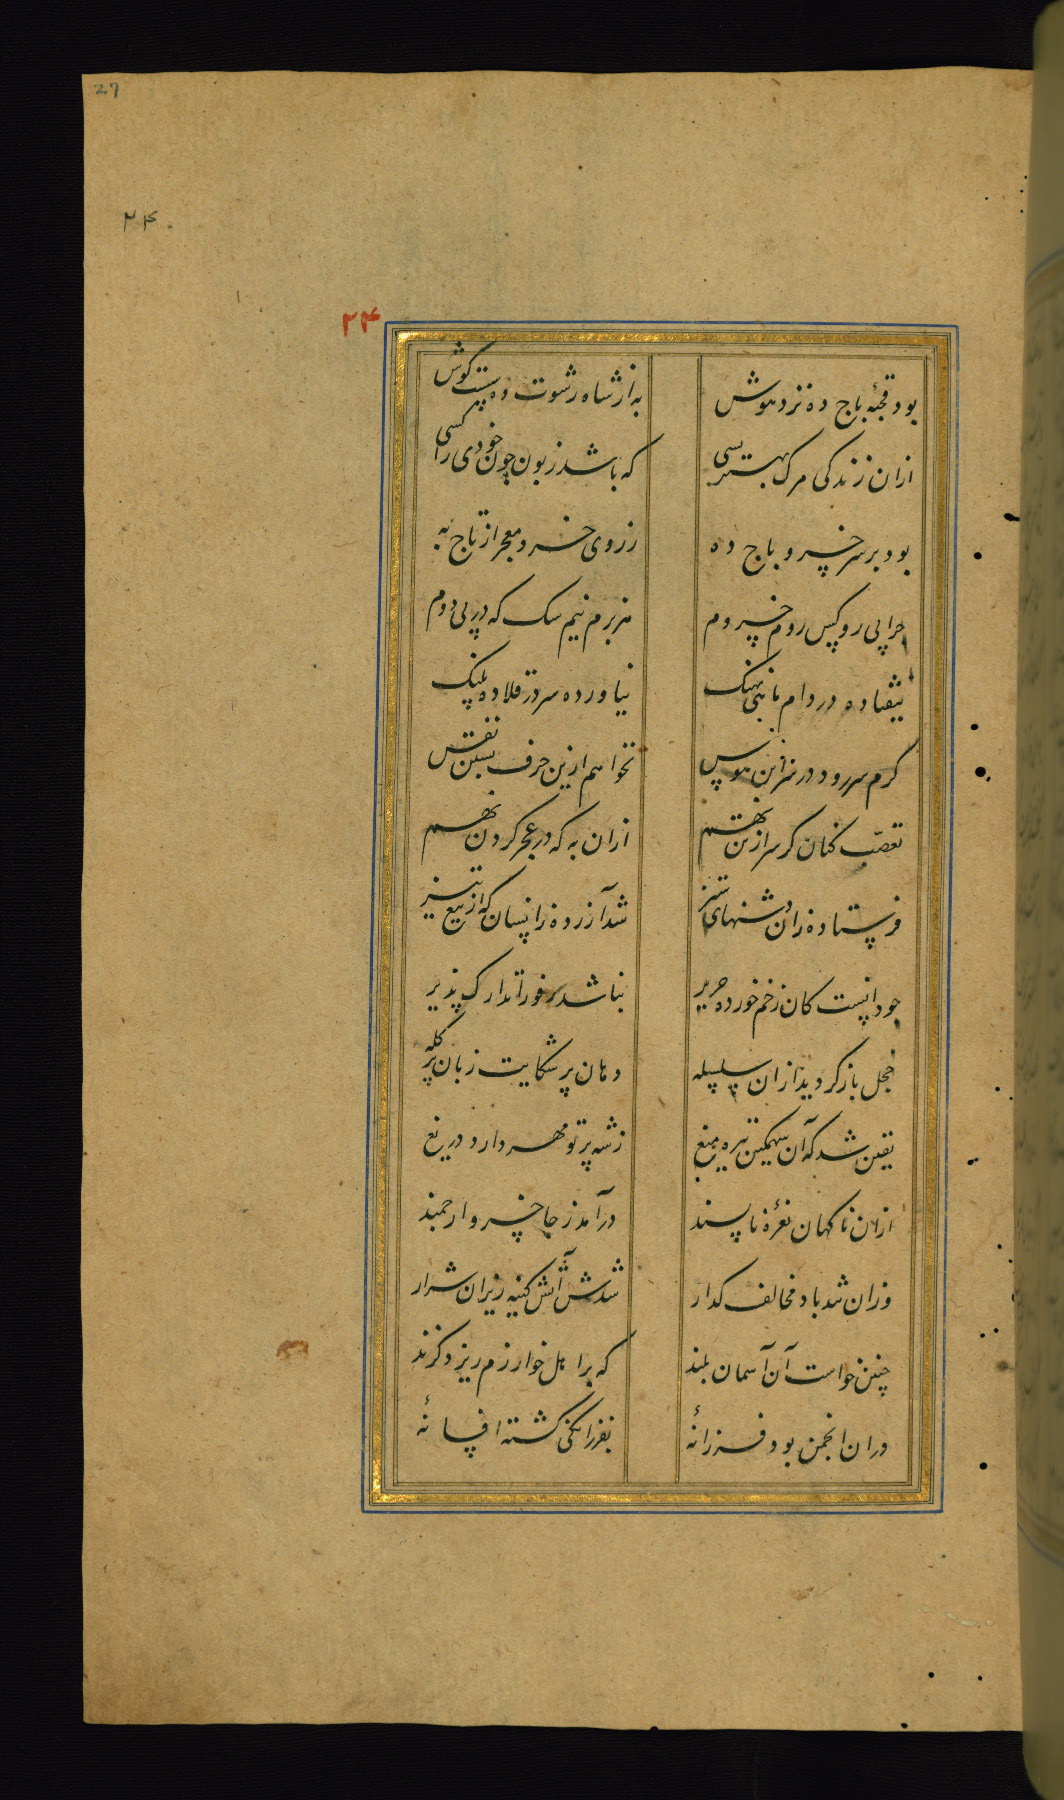 27
۲۴
۲۴
بود قحبهٔ باج ده نزد هوش به از شاه رشوت ده پست کوش
ازان زندکی مرک بهتر بسی که باشد زبون چون خودی را کسی
بود بر سر خسرو باج ده ز روی خرد معجر از تاج به
چرا پی رو کس روم خسروم هزبرم نیم سک که در پی دوم
نیفتاده در دام ماهی نهنک نیاورده سر در قلاده پلنک
کرم سر رود در سر این هوس نخواهم ازین حرف بستن نفس
تعصب کنان کر سر از تن نهم ازان به که در عجز کردن نهم
فرستاده زان دشنهای ستیز شد آزرده زانسان که از تیغ تیز
چو دانست کان زخم خورده حریر نباشد رفو را تدارک پذیر
خجل باز کردید ازان سلسله دهان پر شکایت زبان پر کله
یقین شد که آن سهمکین تیره میغ ز شه پرتو مهر دارد دریغ
ازان ناکهان نعرهٔ ناپسند درآمد ز جا خسرو ارجمند
وزان شد باد مخالف کدار شدش آتش کینه ریزان شرار
چنین خواست آن آسمان بلند که بر اهل خوارزم ریزد کزند
دران انجمن بود فرزانهٔ بفرزانکی کشته افسانهٔ